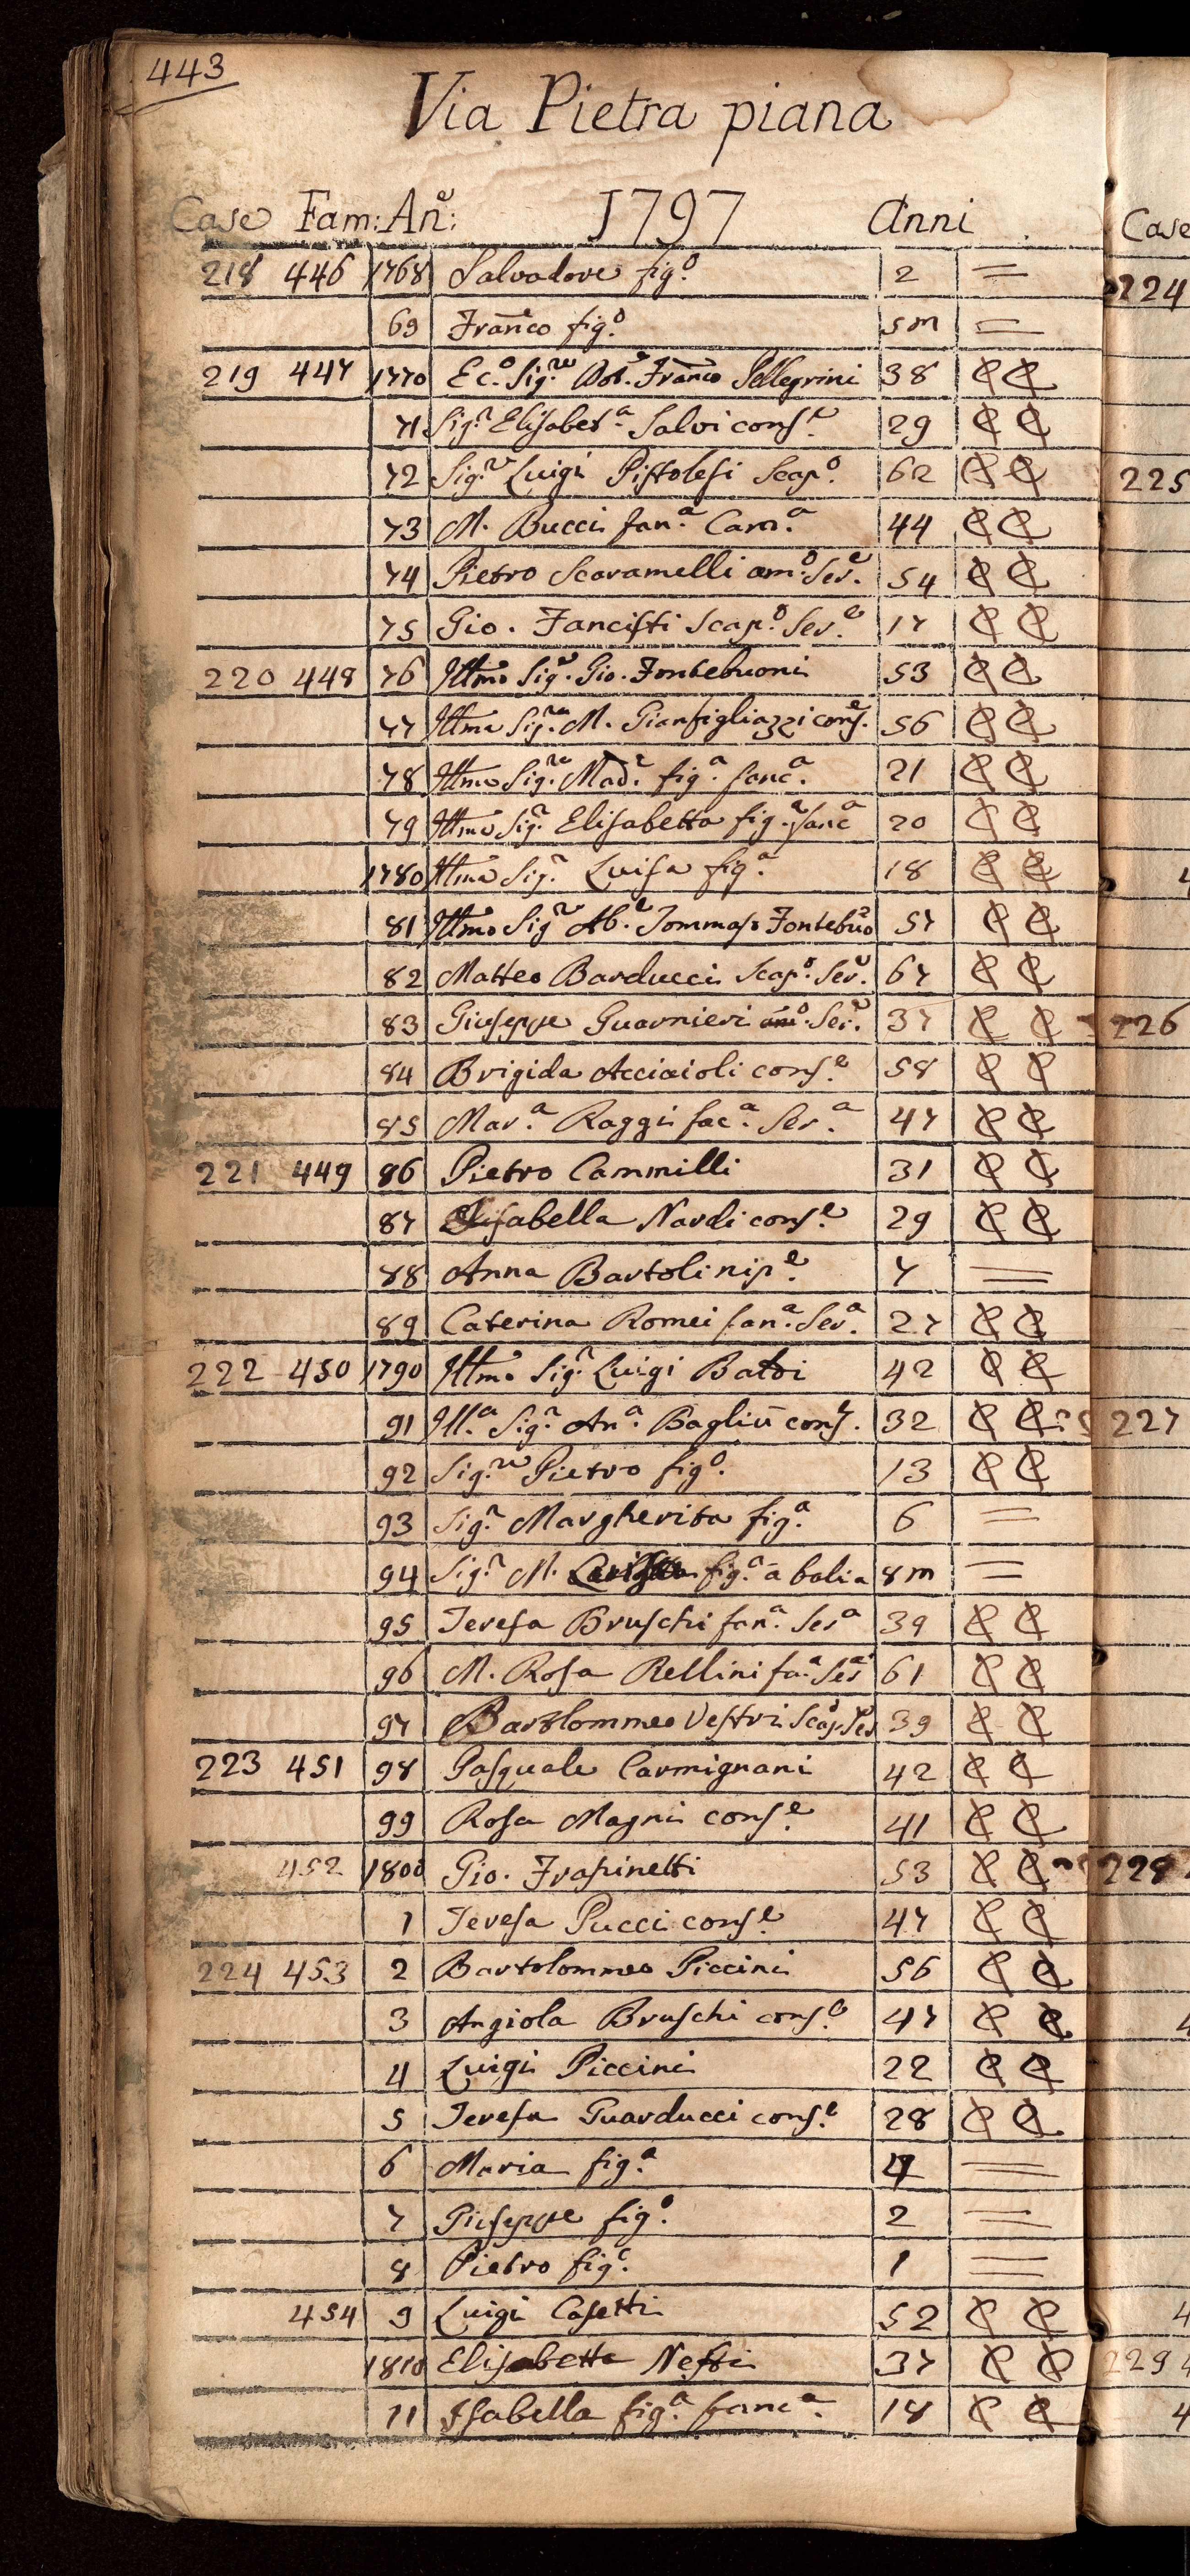 443
Via Pietra piana
Case Fam: An:e 1797 Anni
218 446 1768 Salvadore fig.o 2 =
69 Franco fig.o 5m =
219 447 1770 Ec.o Sig.re Dot.e Franco Pellegrini 38 C C
71 Sig.ra Elisabet.a Salvi cons.e 29 C C
72 Sig.re Luigi Pistolesi Scap.o 62 C C
73 M. Bucci fan.a Cam.a 44 C C
74 Pietro Scaramelli am.o Ser.e 54 C C
75 Gio. Fancisti Scap.o Ser.e 17 C C
220 448 76 Illmo Sig.e Gio. Fontebuoni 53 C C
77 Illma Sig.ra M. Gianfigliazzi cons.e 56 C C
78 Illma Sig.ra Mad.e fig.a fanc.a 21 C C
79 Illma Sig.a Elisabetta fig.a fanc.a 20 C C
1780 Illma Sig.a Luisa fig.a 18 C C
81 Illmo Sig.e Ab.e Tommaso Fontebuo 57 C C
82 Matteo Barducci Scap.o Ser.e 67 C C
83 Giuseppe Guarnieri am.o Ser.e 37 C C
84 Brigida Acciaioli cons.e 58 C C
85 Mar.a Raggi fac.a Ser.a 47 C C
221 449 86 Pietro Cammilli 31 C C
87 Elisabella Nardi cons.e 29 C C
88 Anna Bartoli nip.e 7 =
89 Caterina Romei fan.a Ser.a 27 C C
222 450 1790 Illmo Sig.e Luigi Batoi 42 C C
91 Ill.a Sig.a An.a Baglii cons.e 32 C C
92 Sig.re Pietro fig.o 13 C C
93 Sig.a Margherita fig.a 6 =
94 Sig.a M. fig.a a balia 8m =
95 Teresa Bruschi fan.a Ser.a 39 C C
96 M. Rosa Rellini fa.a Ser.a 61 C C
97 Bartolommeo Vestri Scap.o Ser.e 39 C C
223 451 98 Pasquale Carmignani 42 C C
99 Rosa Magni cons.e 41 C C
452 1800 Gio. Frasinetti 53 C C
1 Teresa Pucci cons.e 47 C C
224 453 2 Bartolommeo Piccini 56 C C
3 Angiola Bruschi cons.e 47 C C
4 Luigi Piccini 22 C C
5 Teresa Guarducci cons.e 28 C C
6 Maria fig.a 4 =
7 Giuseppe fig.o 2 =
8 Pietro fig.o 1 =
454 9 Luigi Casetti 52 C C
1810 Elisabetta Nesti 37 C C
11 Isabella fig.a fanc.a 18 C C
Case
224
225
226
227
228
229